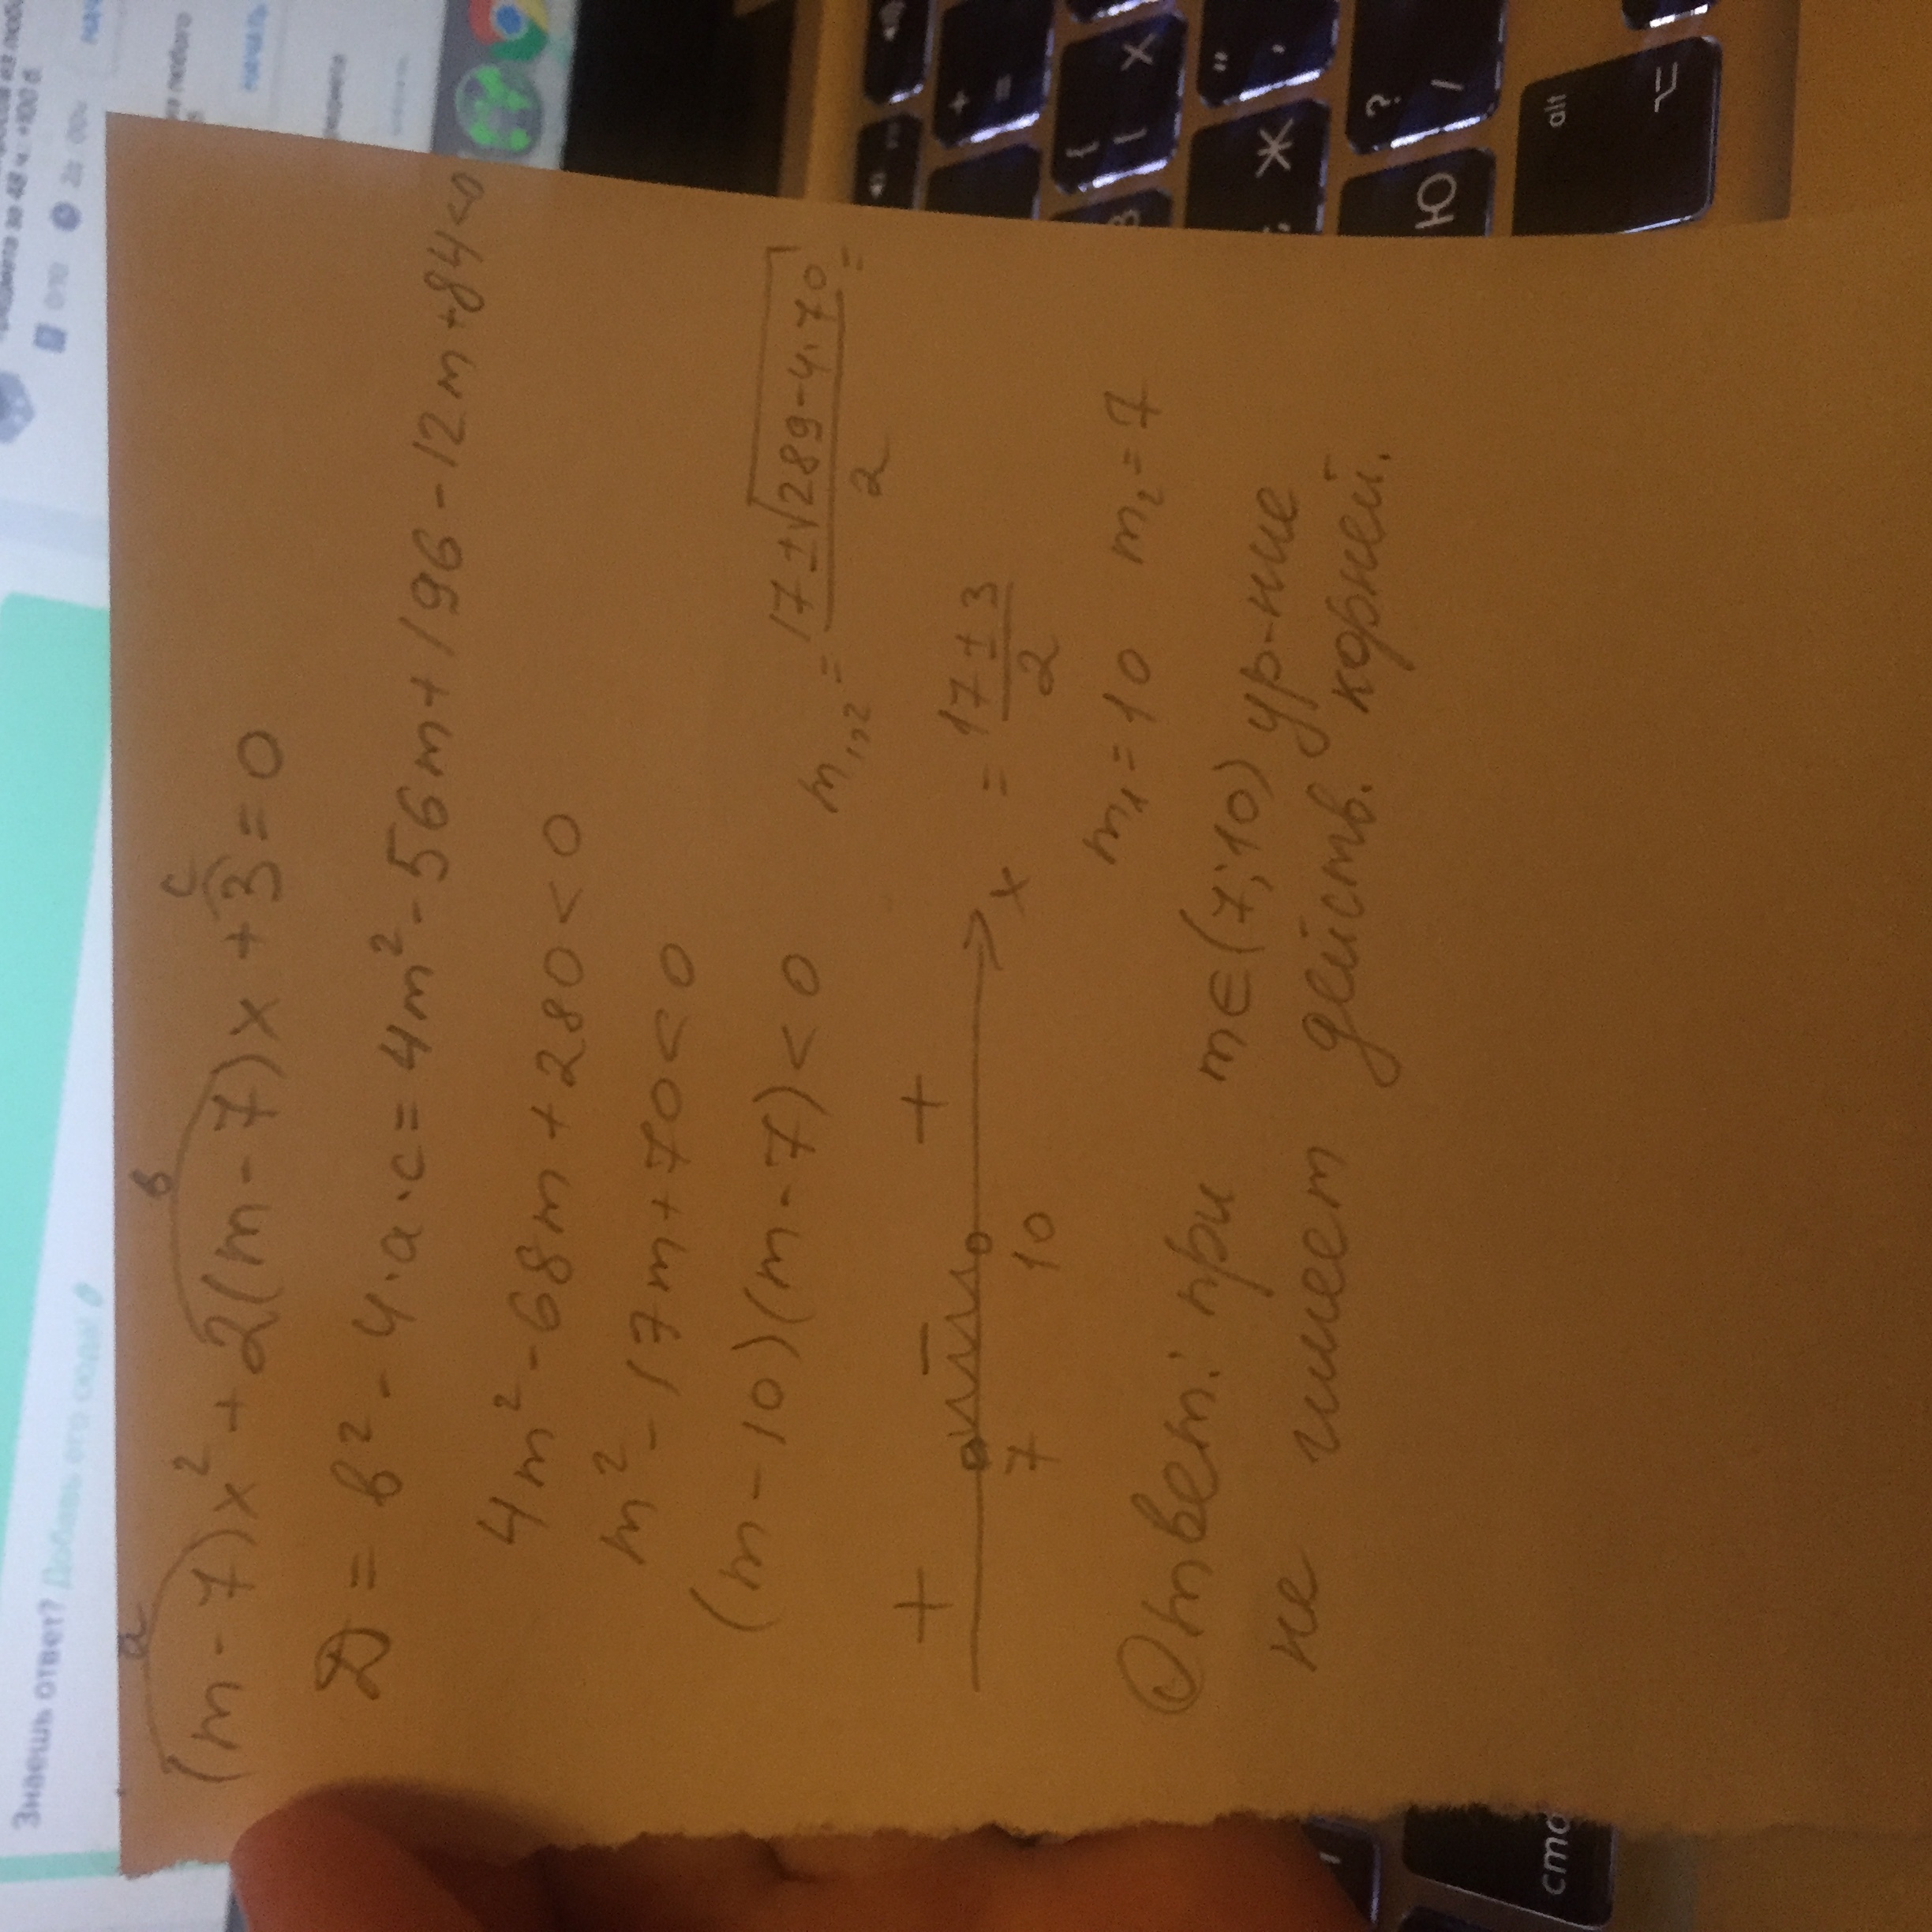 Знаешь ответ? Добавь его сюда!
a b c
(m-7)x² + 2(m-7)x + 3 = 0
D = b² - 4·a·c = 4m² - 56m + 196 - 12m + 84 < 0
4m² - 68m + 280 < 0
m² - 17m + 70 < 0
(m - 10)(m - 7) < 0
m₁,₂ = 17 ± √289 - 4·70 =
2
+ - + x
7 10
= 17 ± 3
2
m₁ = 10 m₂ = 7
Ответ: при m ∈ (7; 10) ур-ние
не имеет действ. корней.
+ =
{ X
" ,
Ж
? /
Ю
alt
cmd